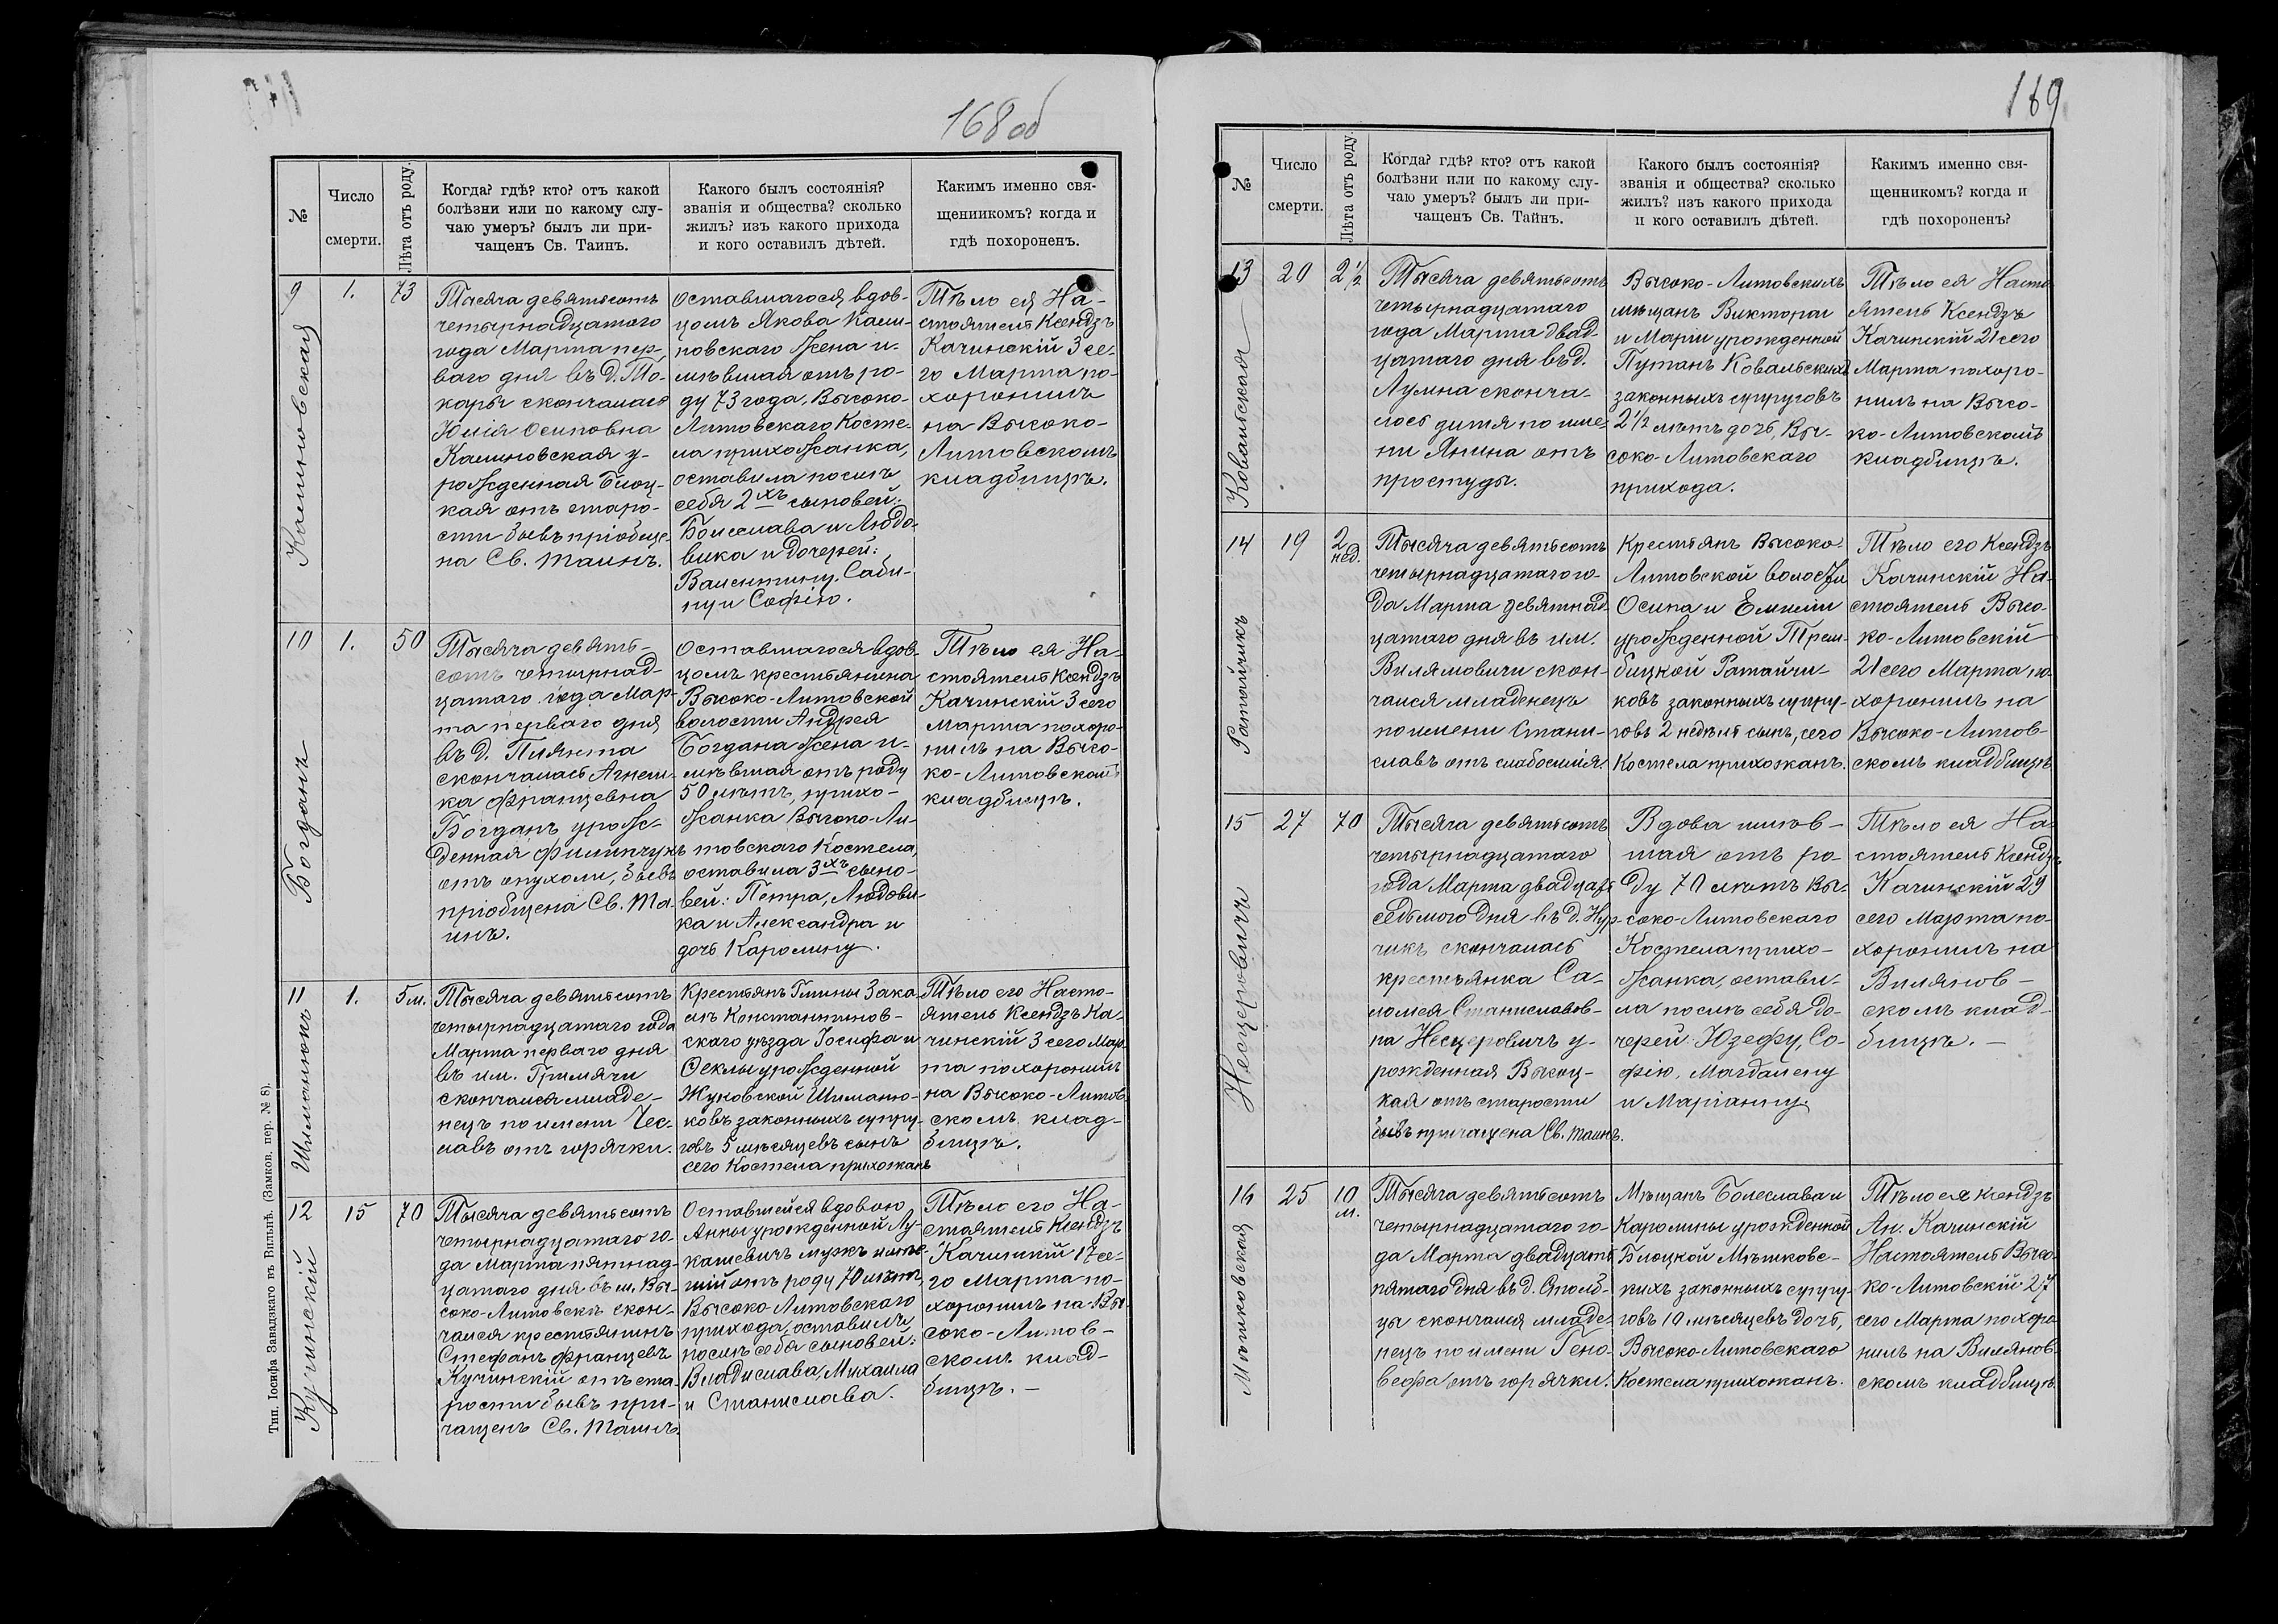 168 об
№
Число
смерти.
Лѣта отъ роду.
Когда? гдѣ? кто? отъ какой
болѣзни или по какому слу-
чаю умеръ? былъ ли при-
чащенъ Св. Таинъ.
Какого былъ состоянія?
званія и общества? сколько
жилъ? изъ какого прихода
и кого оставилъ дѣтей.
Какимъ именно свя-
щенникомъ? когда и
гдѣ похороненъ.
9
Калиновская
1.
73
Тысяча девятьсотъ
четырнадцатого
года Марта пер-
ваго дня въ д. То-
кары скончалась
Юлія Осиповна
Калиновская у-
рожденная Блоц-
кая отъ старо-
сти бывъ пріобще-
на Св. Таинъ.
Оставшагося вдов-
цомъ Якова Кали-
новскаго жена и-
мѣвшая отъ ро-
ду 73 года, Высоко-
Литовскаго Косте-
ла прихожанка,
оставила послѣ
себя 2хъ сыновей:
Болеслава и Людо-
вика и дочерей:
Валентину, Саби-
ну и Софію.
Тѣло ея На-
стоятель Ксендзъ
Качинскій 3 се-
го Марта по-
хоронилъ
на Высоко-
Литовскомъ
кладбищѣ.
10
Богданъ
1.
50
Тысяча девять-
сотъ четырнад-
цатаго года Мар-
та перваго дня
въ д. Пиянта
скончалась Агнеш-
ка Францевна
Богданъ урож-
денная Филипчукъ
отъ опухоли, бывъ
пріобщена Св. Та-
инъ.
Оставшагося вдов-
цомъ крестьянина
Высоко-Литовской
волости Андрея
Богдана жена и-
мѣвшая отъ роду
50 лѣтъ, прихо-
жанка Высоко-Ли-
товскаго Костела,
оставила 3хъ сыно-
вей: Петра, Людови-
ка и Александра и
дочь Каролину.
Тѣло ея На-
стоятель Ксендзъ
Качинскій 3 сего
Марта похоро-
нилъ на Высо-
ко-Литовскомъ
кладбищѣ.
11
Шиманюкъ
1.
5 м.
Тысяча девятьсотъ
четырнадцатаго года
Марта перваго дня
въ им. Гримячи
скончался младе-
нецъ по имени Чес-
лавъ отъ горячки.
Крестьянъ Гмины Зака-
лѣ Константинов-
скаго уѣзда Іосифа и
Ѳеклы урожденной
Жуковской Шиманю-
ковъ законныхъ супру-
говъ 5 мѣсяцевъ сынъ
сего Костела прихожанъ
Тѣло его Насто-
ятель Ксендзъ Ка-
чинскій 3 сего Мар-
та похоронилъ
на Высоко-Литов-
скомъ клад-
бищѣ.
12
Кучинскій
15
70
Тысяча девятьсотъ
четырнадцатаго го-
да Марта пятнад-
цатаго дня въ м. Вы-
соко-Литовскѣ скон-
чался крестьянинъ
Стефанъ Францевъ
Кучинскій отъ ста-
рости бывъ при-
чащенъ Св. Таинъ.
Оставшейся вдовою
Анны урожденной Лу-
кашевичъ мужъ имѣв-
шій отъ роду 70 лѣтъ,
Высоко-Литовскаго
прихода, оставилъ
послѣ себя сыновей:
Владислава, Михаила
и Станислава.
Тѣло его На-
стоятель Ксендзъ
Качинскій 17 се-
го Марта по-
хоронилъ на Вы-
соко-Литов-
скомъ клад-
бищѣ. —
Тип. Іосифа Завадзкаго въ Вильнѣ. (Замков. пер. № 8).
169
№
Число
смерти.
Лѣта отъ роду.
Когда? гдѣ? кто? отъ какой
болѣзни или по какому слу-
чаю умеръ? былъ ли при-
чащенъ Св. Тайнъ.
Какого былъ состоянія?
званія и общества? сколько
жилъ? изъ какого прихода
и кого оставилъ дѣтей.
Какимъ именно свя-
щенникомъ? когда и
гдѣ похороненъ?
13
Ковальская
20
2 1/2
Тысяча девятьсотъ
четырнадцатаго
года Марта двад-
цатаго дня въ д.
Лумна сконча-
лось дитя по име-
ни Янина отъ
простуды.
Высоко-Литовскихъ
мѣщанъ Викторіи
и Маріи урожденной
Путанъ Ковальскихъ
законныхъ супруговъ
2 1/2 лѣтъ дочь, Вы-
соко-Литовскаго
прихода.
Тѣло ея Насто-
ятель Ксендзъ
Качинскій 21 сего
Марта похоро-
нилъ на Высо-
ко-Литовскомъ
кладбищѣ.
14
Ратайчикъ
19
2
нед.
Тысяча девятьсотъ
четырнадцатаго го-
да Марта девятнад-
цатаго дня въ им.
Вилямовичи скон-
чался младенецъ
по имени Стани-
славъ отъ слабосилія.
Крестьянъ Высоко-
Литовской волости
Осипа и Емиліи
урожденной Трем-
бицкой Ратайчи-
ковъ законныхъ супру-
говъ 2 недѣль сынъ, сего
Костела прихожанъ.
Тѣло его Ксендзъ
Качинскій На-
стоятель Высо-
ко-Литовскій
21 сего Марта по-
хоронилъ на
Высоко-Литов-
скомъ кладбищѣ
15
Несцеровичъ
27
70
Тысяча девятьсотъ
четырнадцатаго
года Марта двадцать
седьмого дня въ д. Нур-
чикъ скончалась
крестьянка Са-
ломея Станиславов-
на Несцеровичъ у-
рожденная Высоц-
кая отъ старости
бывъ причащена Св. Таинъ.
Вдова имѣв-
шая отъ ро-
ду 70 лѣтъ Вы-
соко-Литовскаго
Костела прихо-
жанка, остави-
ла послѣ себя до-
черей: Юзефу, Со-
фію, Магдалену
и Маріанну.
Тѣло ея На-
стоятель Ксендзъ
Качинскій 29
сего Марта по-
хоронилъ на
Вилянов-
скомъ клад-
бищѣ. —
16
Мѣшковская
25
10
м.
Тысяча девятьсотъ
четырнадцатаго го-
да Марта двадцать
пятаго дня въ д. Столб-
цы скончался младе-
нецъ по имени Гено-
вефа отъ горячки.
Мѣщанъ Болеслава и
Каролины урожденной
Блоцкой Мѣшковс-
кихъ законныхъ супру-
говъ 10 мѣсяцевъ дочь,
Высоко-Литовскаго
Костела прихожанъ.
Тѣло ея Ксендзъ
Ан. Качинскій
Настоятель Высо-
ко-Литовскій 27
сего Марта похоро-
нилъ на Вилянов-
скомъ кладбищѣ.